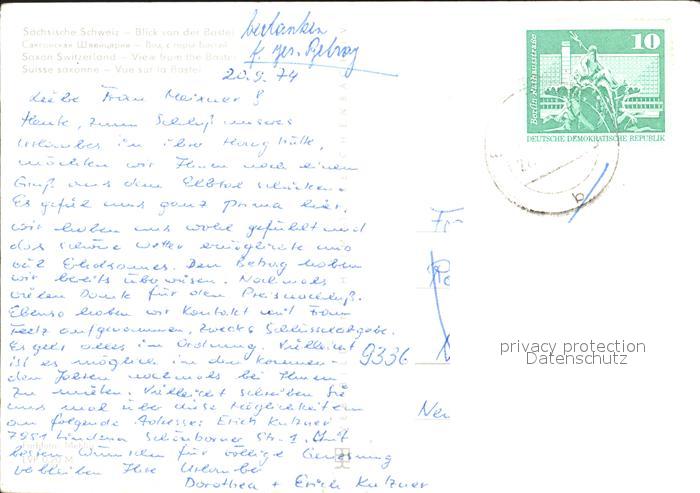 Sächsische Schweiz – Blick von der Bastei
Саксонская Швейцария – Вид с горы Бастей
Saxon Switzerland – View from the Bastei
Suisse saxonne – Vue sur la Bastei
bedanken
f. ges. Betrag
20.9.74
Liebe Frau Meixner!
Heute, zum Schluß unseres
Urlaubes in Ihrer Hütte,
möchten wir Ihnen noch einen
Gruß aus dem Elbtal schicken.
Es gefiel uns ganz prima hier,
wir haben uns wohl gefühlt und
das schöne Wetter ermöglichte uns
viel Erholsames. Den Betrag haben
wir bereits überwiesen. Nochmals
vielen Dank für den Preisnachlaß.
Ebenso haben wir Kontakt mit Frau
aufgenommen, zwecks Schlüsselabgabe.
Es geht alles in Ordnung. Vielleicht
ist es möglich in den kommen-
den Jahren nochmals bei Ihnen
zu mieten. Vielleicht schreiben Sie
uns mal über diese Möglichkeiten
an folgende Adresse: Erich Kutzner
7951 Lindena Schönborner Str. 1. Mit
besten Wünschen für völlige Genesung
verbleiben Ihre Urlauber
Dorothea + Erich Kutzner
10
Berlin-Rathausstraße
DEUTSCHE DEMOKRATISCHE REPUBLIK
b
9336
Nei
privacy protection
Datenschutz